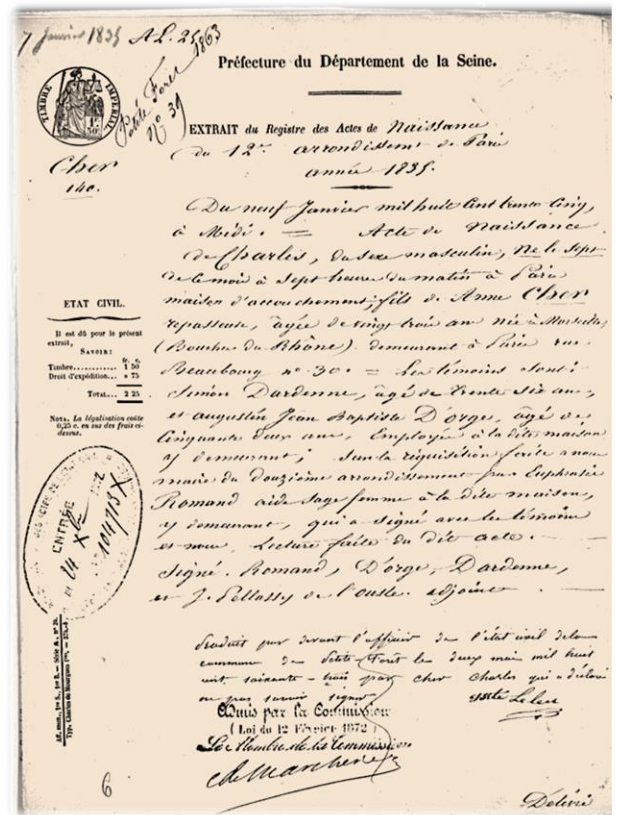 7 Janvier 1835 AL. 25
1863
Petite Foret
N° 39
Préfecture du Département de la Seine.
TIMBRE IMPERIAL
1F 50C
EXTRAIT du Registre des Actes de Naissance
du 12me arrondissement de Paris
année 1835.
Cher
14c.
Du neuf Janvier mil huit cent trente cinq,
à Midi. = Acte de Naissance
de Charles, du sexe masculin, né le sept
de ce mois à sept heures du matin à Paris
maison d'accouchement; fils de Anne Cher
repasseuse, âgée de vingt trois ans née à Marseille
(Bouches du Rhône) demeurant à Paris rue
Beaubourg n° 30. = Les témoins sont:
Simon Dardenne, âgé de trente six ans,
et augustin Jean Baptiste D'orge, âgé de
Cinquante deux ans, Employés à la dite maison
y demeurant; sur la réquisition faite à nous
maire du douzième arrondissement par Euphrasie
Romand aide Sage femme à la dite maison,
y demeurant, qui a signé avec les témoins
et nous. Lecture faite du dit acte.
Signé. Romand, D'orge, Dardenne,
et J. Pellassy de l'ousle. adjoint
ETAT CIVIL.
Il est dû pour le présent
extrait,
SAVOIR:
fr. c.
Timbre............ 1 50
Droit d'expédition... » 75
TOTAL... 2 25
NOTA. La légalisation coûte
0,25 c. en sus des frais ci-
dessus.
ENTRÉE
24 Xbre
Produit par devant l'officier de l'état civil de la
commune de Petite Forêt le deux mai mil huit
cent soixante-trois par Cher Charles qui a déclaré
ne pas savoir signer
Admis par la Commission
(Loi du 12 Février 1872)
Le Membre de la Commission
6
Délivré